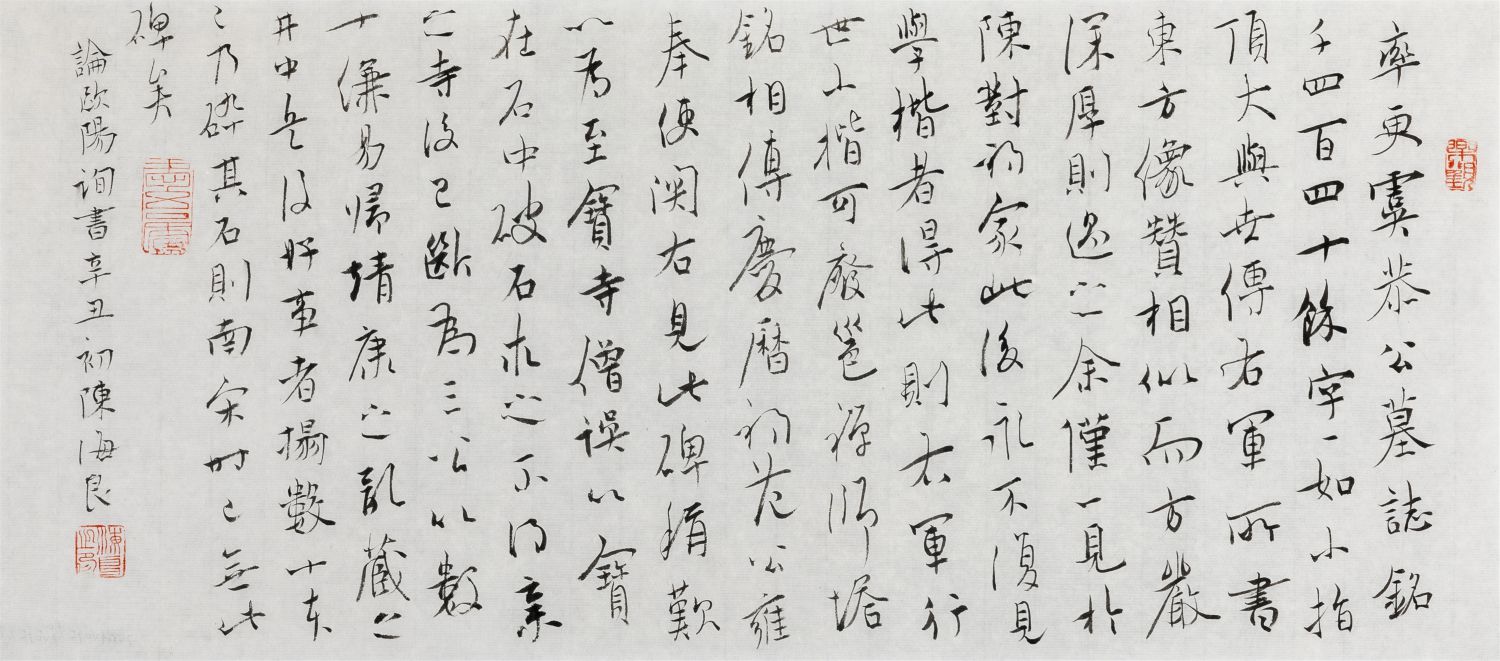 率更虞恭公墓誌銘
千四百四十餘字一如小指
頂大與世傳右軍所書
東方像贊相似而方嚴
深厚則過之余僅一見於
陳對初家此後永不復見
學楷者得此則右軍行
世小楷可廢邕禪師塔
銘相傳慶曆初范公雍
奉使関右見此碑稱歎
以為至寶寺僧誤以寶
在石中破石求之不得棄
之寺後已斷為三公以數
十縑易歸靖康之亂藏之
井中兵後好事者搨數十本
已乃碎其石則南宋時已無此
碑矣
論歐陽詢書辛丑初陳海良